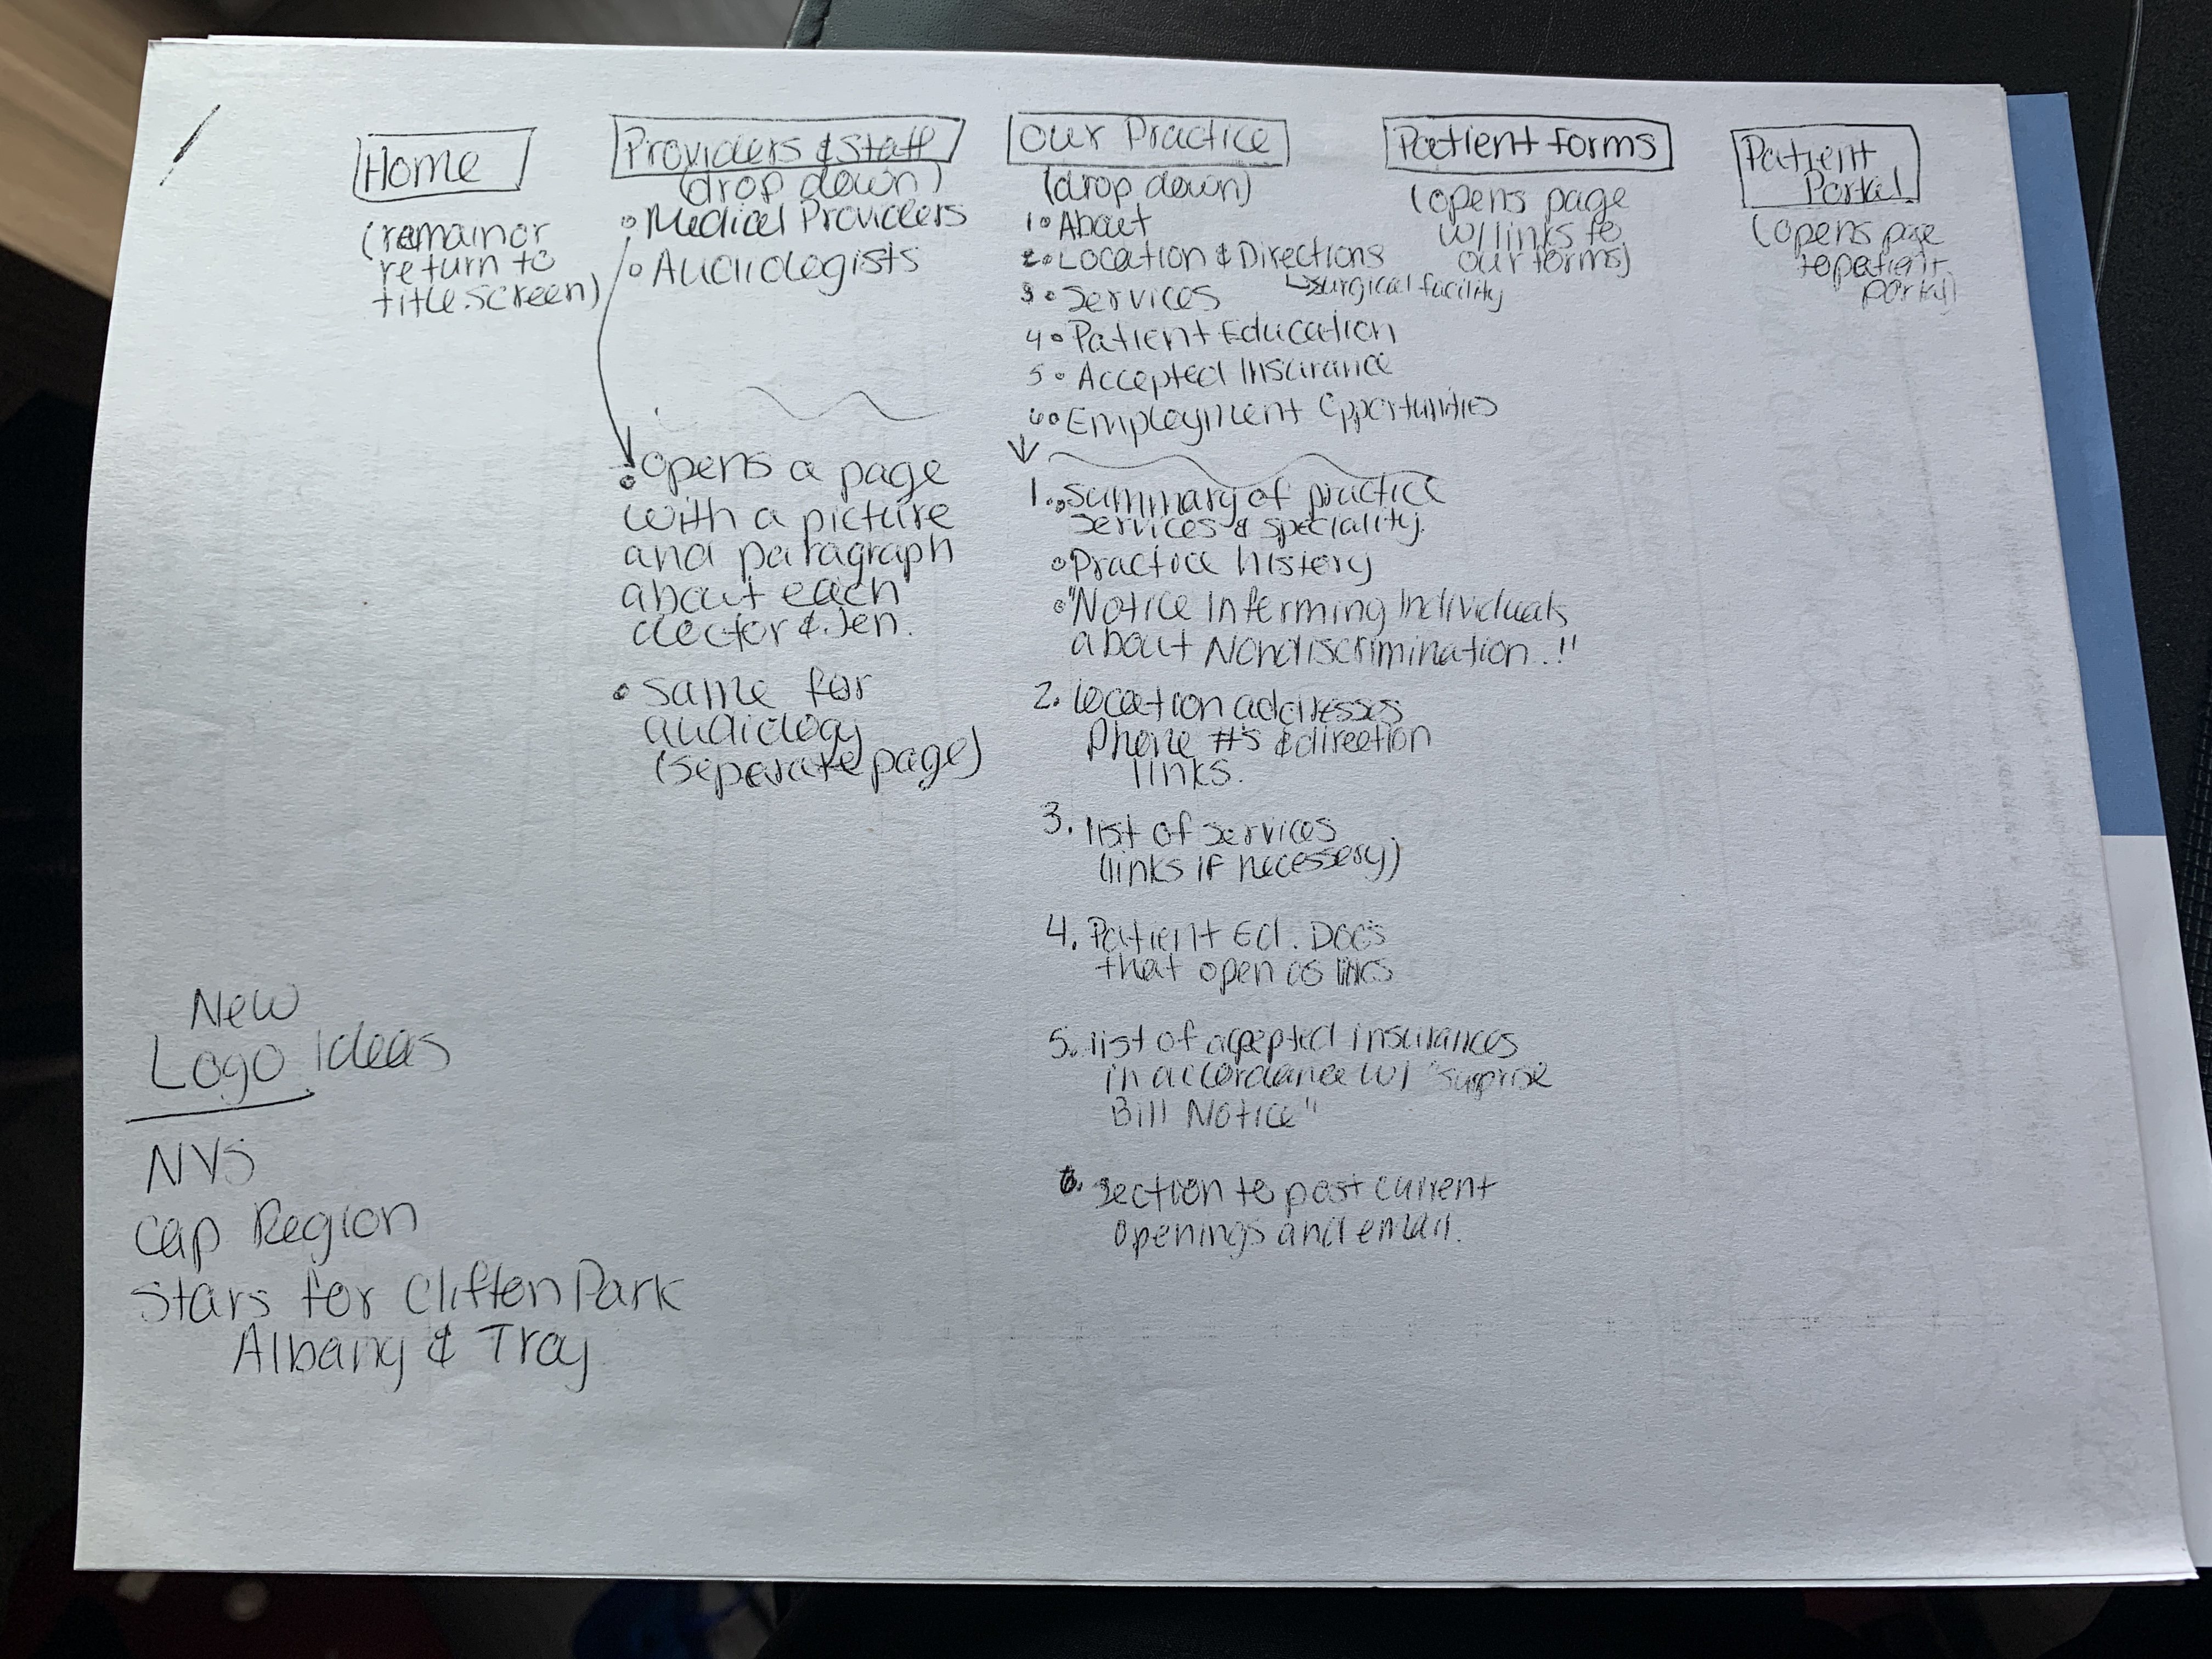 Home
(remain or
return to
title screen)
Providers & Staff
(drop down)
• Medical Providers
• Audiologists
• opens a page
with a picture
and paragraph
about each
doctor & Jen.
• same for
audiology
(seperate page)
Our Practice
(drop down)
1• About
2• Location & Directions
↳surgical facility
3• Services
4• Patient Education
5• Accepted Insurance
6• Employment Opportunities
1. • Summary of practice
services & speciality.
• Practice history
• "Notice Informing Individuals
about Nondiscrimination.."
2. location addresses
Phone #'s & direction
links.
3. list of services
(links if necessery)
4. Patient Ed. Docs
that open as links
5. list of accepted insurances
in accordance w/ "surprise
Bill Notice"
6. section to post current
openings and email.
Patient forms
(opens page
w/ links to
our forms)
Patient
Portal
(opens page
to patient
portal)
New
Logo Ideas
NYS
Cap Region
Stars for Clifton Park
Albany & Troy